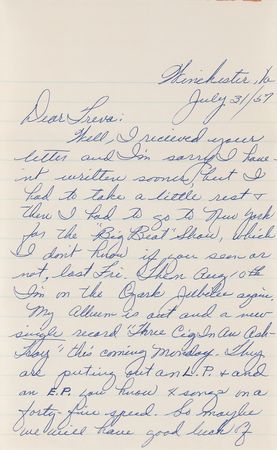 Winchester, Va
July 31/57
Dear Treva:
Well, I recieved your
letter and I'm sorry I have-
int written sooner, but I
had to take a little rest +
then I had to go to New York
for the "Big Beat" Show, which
I don't know if you seen or
not, last Fri. Then Aug 10th
I'm on the Ozark Jubilee again.
My Album is out and a new
single record "Three Cig In An Ash-
Tray" this coming Monday. They
are putting out an L.P. + and
an E.P. you know 4 songs on a
forty-five speed. So maybe
we will have good luck if